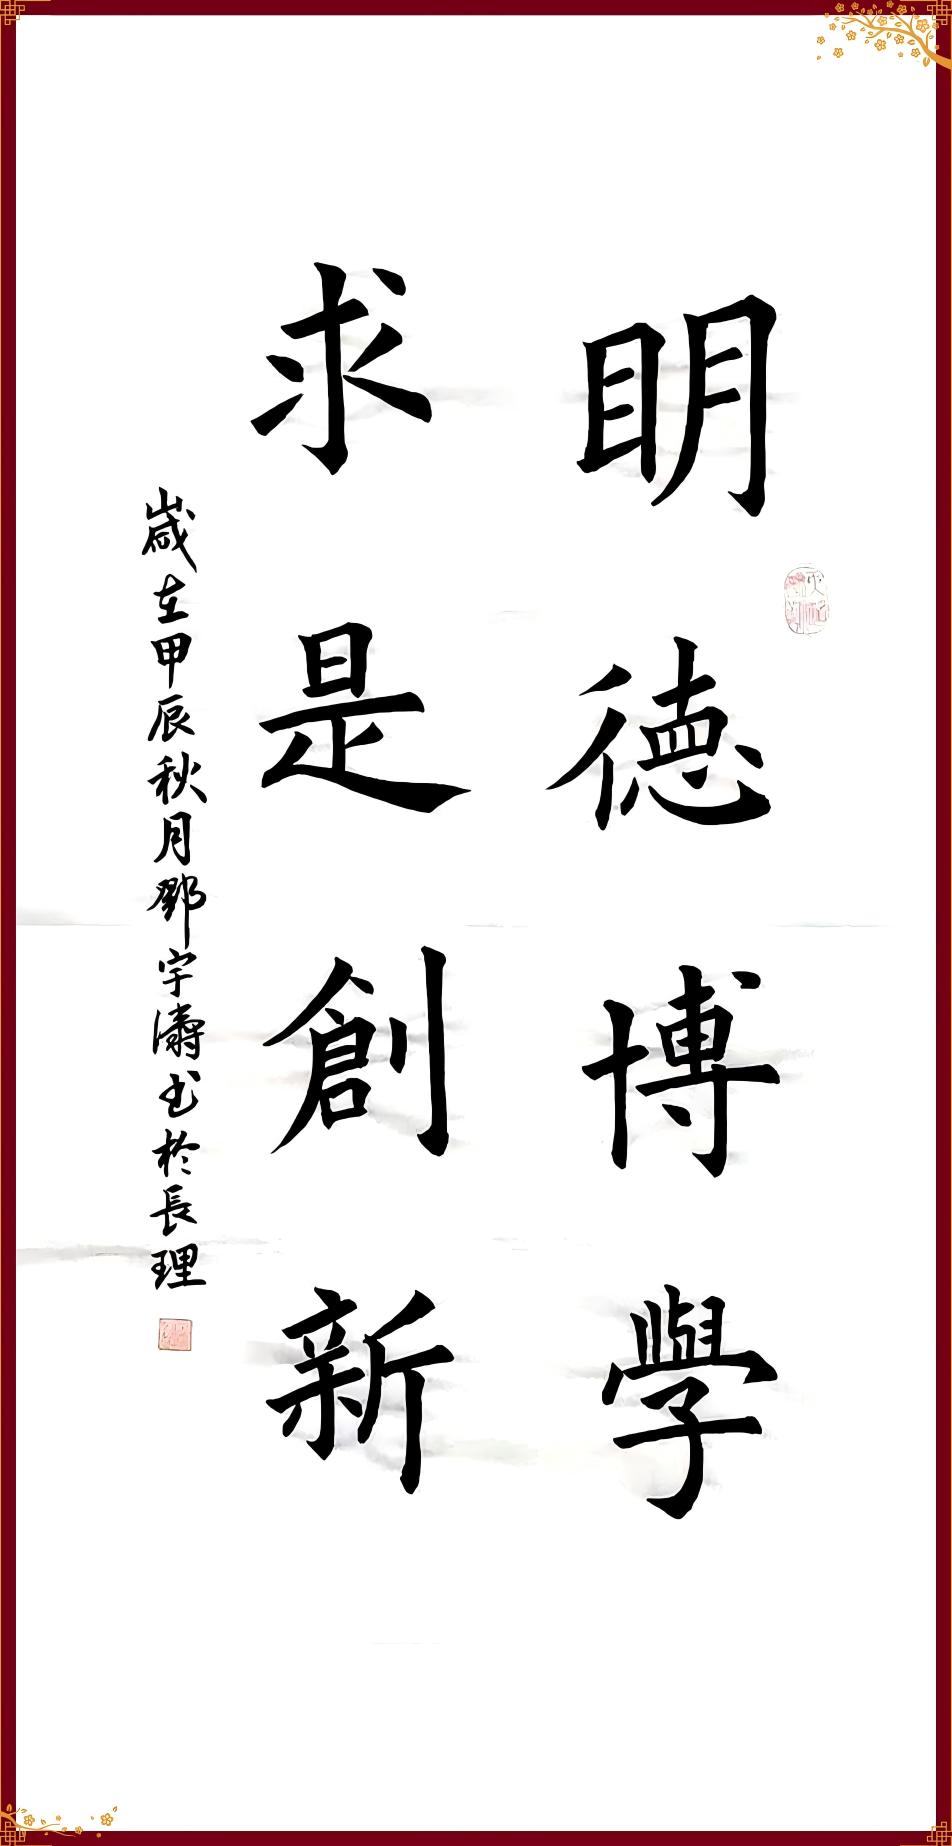 明德博學
求是創新
歲在甲辰秋月鄧宇濤书於長理